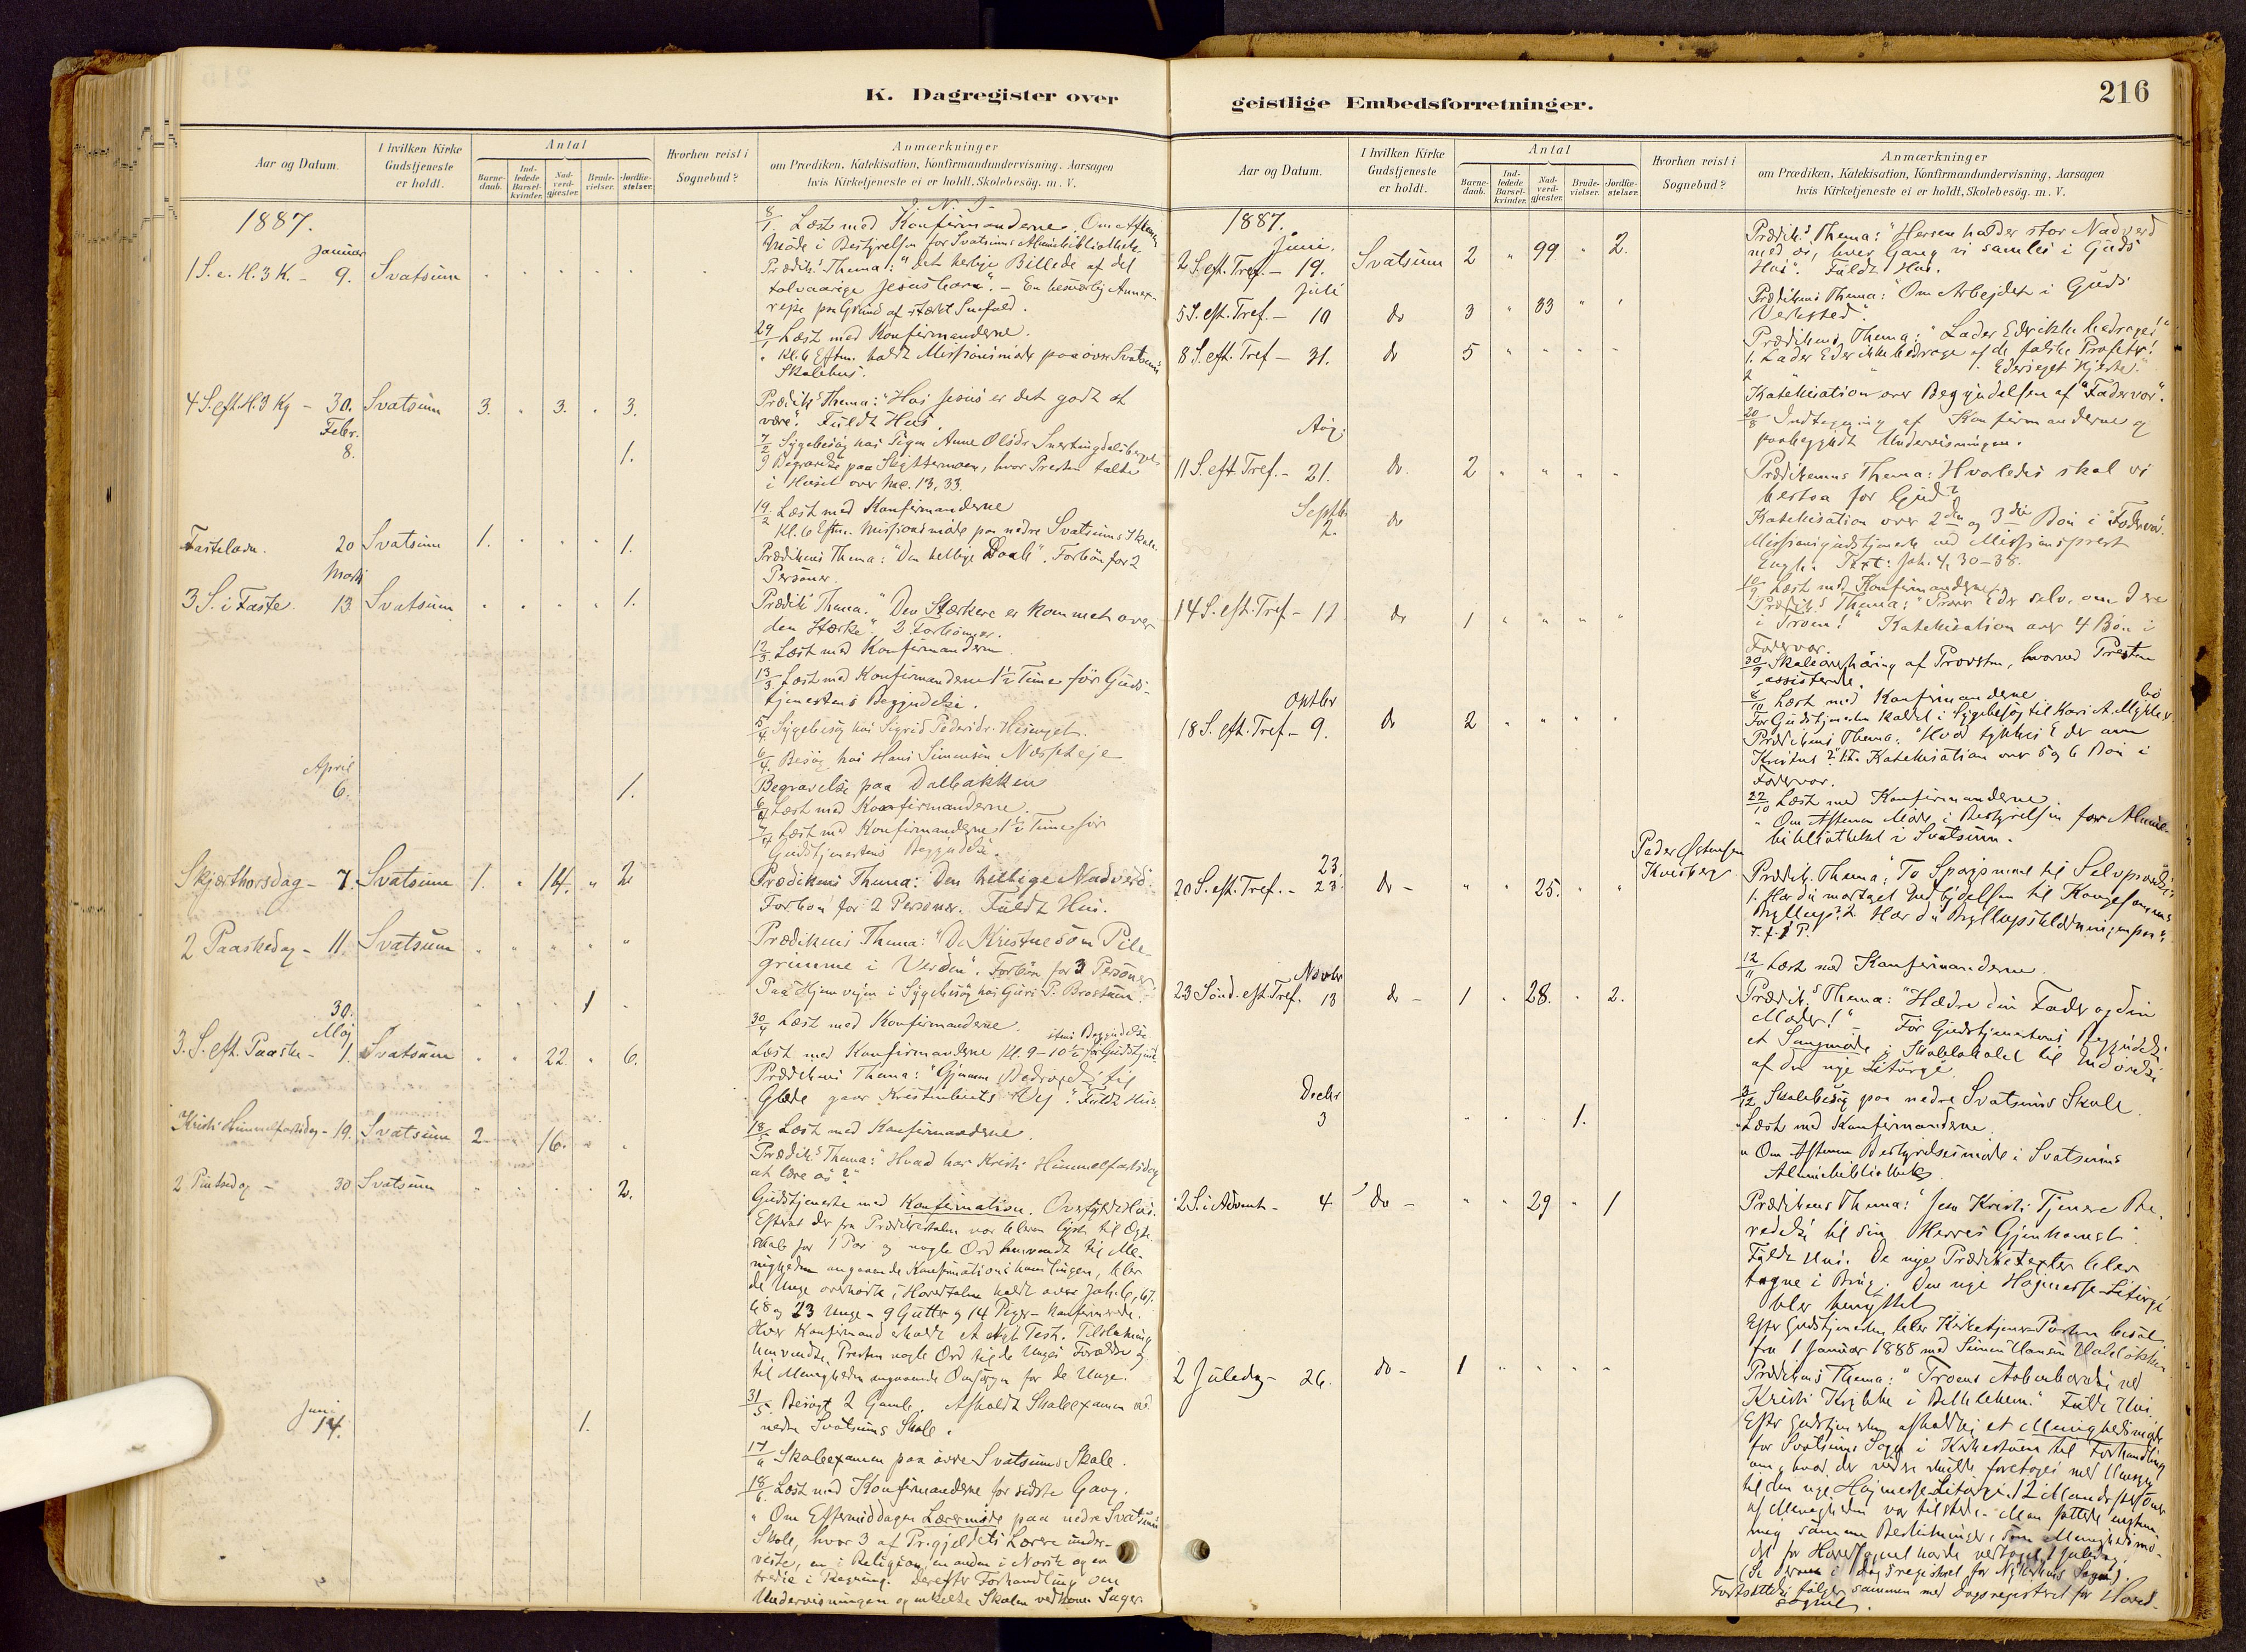 K. Dagregister over
Aar og Datum.
I hvilken Kirke Gudstjeneste er holdt.
Antal
Barne-daab.
Ind-ledede Barsel-kvinder.
Nad-verd-gjester.
Brude-vielser.
Jordfæ-stelser.
Hvorhen reist i Sognebud?
Anmærkninger
om Prædiken, Katekisation, Konfirmandundervisning, Aarsagen
hvis Kirketjeneste ei er holdt, Skolebesøg. m. V.
1887.
8/1 Læst med Konfirmanderne. Om Aftenen
Møde i Bestyrelsen for Svatsums Almuebibliothek.
Januar
1 S. e. H. 3 K. - 9. Svatsum
Prædik.s Thema: "Det herlige Billede af det
tolvaarige Jesusbarn". - En besværlig Annex-
rejse paa Grund af stærkt Snefald.
29/1 Læst med Konfirmanderne.
" Kl. 6 Eftm. holdt Missionsmøde paa øvre Svatsums
Skolehus.
4 S. eft. H. 3 Kg - 30. Svatsum 3. " 3. " 3.
Prædik.s Thema: "Hos Jesus er det godt at
være". Fuldt Hus.
Febr.
8. 1.
7/2 Sygebesøg hos Pigen Anne Olsdr.
i Huset over Mc. 13, 33.
19/2 Læst med Konfirmanderne
Kl. 6 Eftm. Missionsmøde paa nedre Svatsums Skole.
Fastelavn. 20 Svatsum 1. 1.
Prædikens Thema: "Den hellige Daab". Forbøn for 2
Personer.
Marts
3 S. i Faste. 13 Svatsum 1.
Prædik.s Thema. "Den Stærkere er kommet over
den Stærke". 2 Forbønner.
12/3 Læst med Konfirmanderne.
13/3 Læst med Konfirmanderne 1½ Time før Guds-
tjenestens Begyndelse.
5/4 Sygebesøg hos Sigrid Pedersdr.
6/4 Besøg hos Hans Simensen
April
6. 1.
Begravelse paa Dalbakken
6/4 Læst med Konfirmanderne.
7/4 Læst med Konfirmanderne 1½ Time før
Gudstjenestens Begyndelse.
Skjærthorsdag - 7. Svatsum 1. " 14. " 2
Prædikens Thema: Den hellige Nadverd.
Forbøn for 2 Personer. Fuldt Hus.
2 Paaskedag - 11. Svatsum " " " " "
Prædikens Thema: "De Kristne som Pile-
grimme i Verden". Forbøn for 3 Personer
Paa Hjemvejen i Sygebesøg hos Guri P.
30. 1
30/4 Læst med Konfirmanderne.
Maj
3. S. eft. Paaske - 1. Svatsum " " 22 " 6.
Læst med Konfirmanderne Kl. 9-10½ før Gudstjene-
stens Begyndelse
Prædikens Thema: "Gjennem Bedrøvelse til
Glæde gaar Kristenlivets Vej". Fuldt Hus.
18/5 Læst med Konfirmanderne.
Kristi Himmelfartsdag - 19. Svatsum 2 16. " "
Prædik.s Thema: "Hvad har Kristi Himmelfartsdag
at lære os?"
2 Pintsedag - 30 Svatsum 2.
Gudstjeneste med Konfirmation. Overfyldt Hus.
Efterat der fra Prædikestolen var bleven lyst til Ægte-
skab for 1 Par og nogle Ord henvendt til Me-
nigheden angaaende Konfirmationshandlingen, blev
de Unge overhørte, Hovedtalen holdt over Joh. 6, 67.
68 og 23 Unge - 9 Gutter og 14 Piger - Konfirmerede.
Hver Konfirmand erholdt et Nyt Test. Tilslutning
henvendte Presten nogle Ord til de Unges Forældre og
til Menigheden angaaende Omsorgen for de Unge.
31/5 Besøgt 2 Gamle. Afholdt Skoleexamen ved
nedre Svatsums Skole.
Juni
14. 1.
17/6 Skoleexamen paa øvre Svatsums Skole.
18/6 Læst med Konfirmanderne for sidste Gang.
" Om Eftermiddagen Lærermøde paa nedre Svatsums
Skole, hvor 3 af Prgjeldets Lærere under-
viste, en i Religion, en anden i Norsk og en
tredie i Regning. Derefter Forhandling om
Undervisningen og enkelte Skolen vedkom. Sager.
geistlige Embedsforretninger.
216
Aar og Datum.
I hvilken Kirke Gudstjeneste er holdt.
Antal
Barne-daab.
Ind-ledede Barsel-kvinder.
Nad-verd-gjester.
Brude-vielser.
Jordfæ-stelser.
Hvorhen reist i Sognebud?
Anmærkninger
om Prædiken, Katekisation, Konfirmandundervisning, Aarsagen
hvis Kirketjeneste ei er holdt, Skolebesøg. m. V.
1887.
Juni.
2 S. eft. Tref. - 19. Svatsum 2 " 99 " 2.
Prædik.s Thema: "Herren holder stor Nadverd
med os, hver Gang vi samles i Guds
Hus". Fuldt Hus.
Juli
5 S. eft. Tref. - 10 do 3 " 33 "
Prædikens Thema: "Om Arbejdet i Guds
Verksted".
8 S. eft. Tref - 31. do 5 " " " "
Prædikens Thema: "Lader Eder ikke bedrages!"
1. Lader Eder ikke bedrage af de falske Profeter!
2 " " Eders eget Hjerte."
Katekisation over Begyndelsen af "Fadervor".
20/8 Indtegning af Konfirmanderne og
paabegyndt Undervisningen.
Aug.
11 S. eft Tref. - 21. do. 2 " " " "
Prædikenens Thema: Hvorledes skal vi
bestaa for Gud?
Katekisation over 2den og 3die Bøn i "Fadervor".
Septb.
2. do
Missionsgudstjeneste ved Missionsprest
Engh. Text: Joh. 4, 30-38.
10/9 Læst med Konfirmanderne.
14 S. eft. Tref - 11 do 1 " " " "
Prædik.s Thema: "Prøver Eder selv, om I ere
i Troen!" Katekisation over 4 Bøn i
Fadervor.
30/9 Skoleoverhøring af Provsten, hvorved Presten
assisterede.
8/10 Læst med Konfirmanderne.
Oktbr
18 S. eft. Tref - 9. do 2 " " " "
Før Gudstjenesten kaldet i Sygebesøg til Kari A.
Prædikens Thema: "Hvad tykkes Eder om
Kristus?" Katekisation over 5 og 6 Bøn i
Fadervor.
22/10 Læst med Konfirmanderne.
" Om Aftenen Møde i Bestyrelsen for Almue-
bibliotheket i Svatsum.
23.
20 S. eft. Tref. - 23. do - " " 25. " "
Peder Østensen
Kvisberg
Prædik. Thema: To Spørgsmaal til Selvprøvelse.
1. Har du modtaget Indbydelsen til Kongesønnens
Bryllup? 2. Har du Bryllupsklædningen paa?
12/11 Læst med Konfirmanderne.
Novbr
23 Sønd. eft. Tref. 13 do - 1 " 28. " 2.
Prædik.s Thema: "Hædre din Fader og din
Moder!" - Før Gudstjenestens Begyndelse
et Sangmøde i Skolelokalet til Indøvelse
af den nye Liturgi.
Decbr
3 1.
3/12 Skolebesøg paa nedre Svatsums Skole.
" Læst med Konfirmanderne.
" Om Aftenen Bestyrelsesmøde i Svatsums
Almuebibliothek.
2 S. i Advent - 4 do - " " 29 " 1
Prædikens Thema: "Jesu Kristi Tjeneres Be-
redelse til sin Herres Gjenkomst.
Fuldt Hus. De nye Prædiketexter blev
tagne i Brug. Den nye Højmesse-Liturgi
blev benyttet
Efter Gudstjenesten blev Kirketjener-Posten besat
fra 1 Januar 1888 med Simen Hansen
2 Juledag - 26. do - 1 " " " "
Prædikens Thema: "Troens Aabenbarelse ved
Kristi Krybbe i Bethlehem." Fuldt Hus
Efter Gudstjenesten afholdtes et Menighedsmøde
for Svatsums Sogn i Kirkestuen til Forhandling
om, hvad der videre skulde foretages med Hensyn
til den nye Højmesse-Liturgi. 12 Mandspersoner
af Menigheden var tilstede. Man fattede enstem-
mig samme Beslutninger, som Menighedsmø-
det for Hovedsognet havde vedtaget 1 Juledag.
(Se derom i Dagsregistret for Sogn).
Fortsættelse følger sammen med Dagsregistret for Hoved-
sognet.